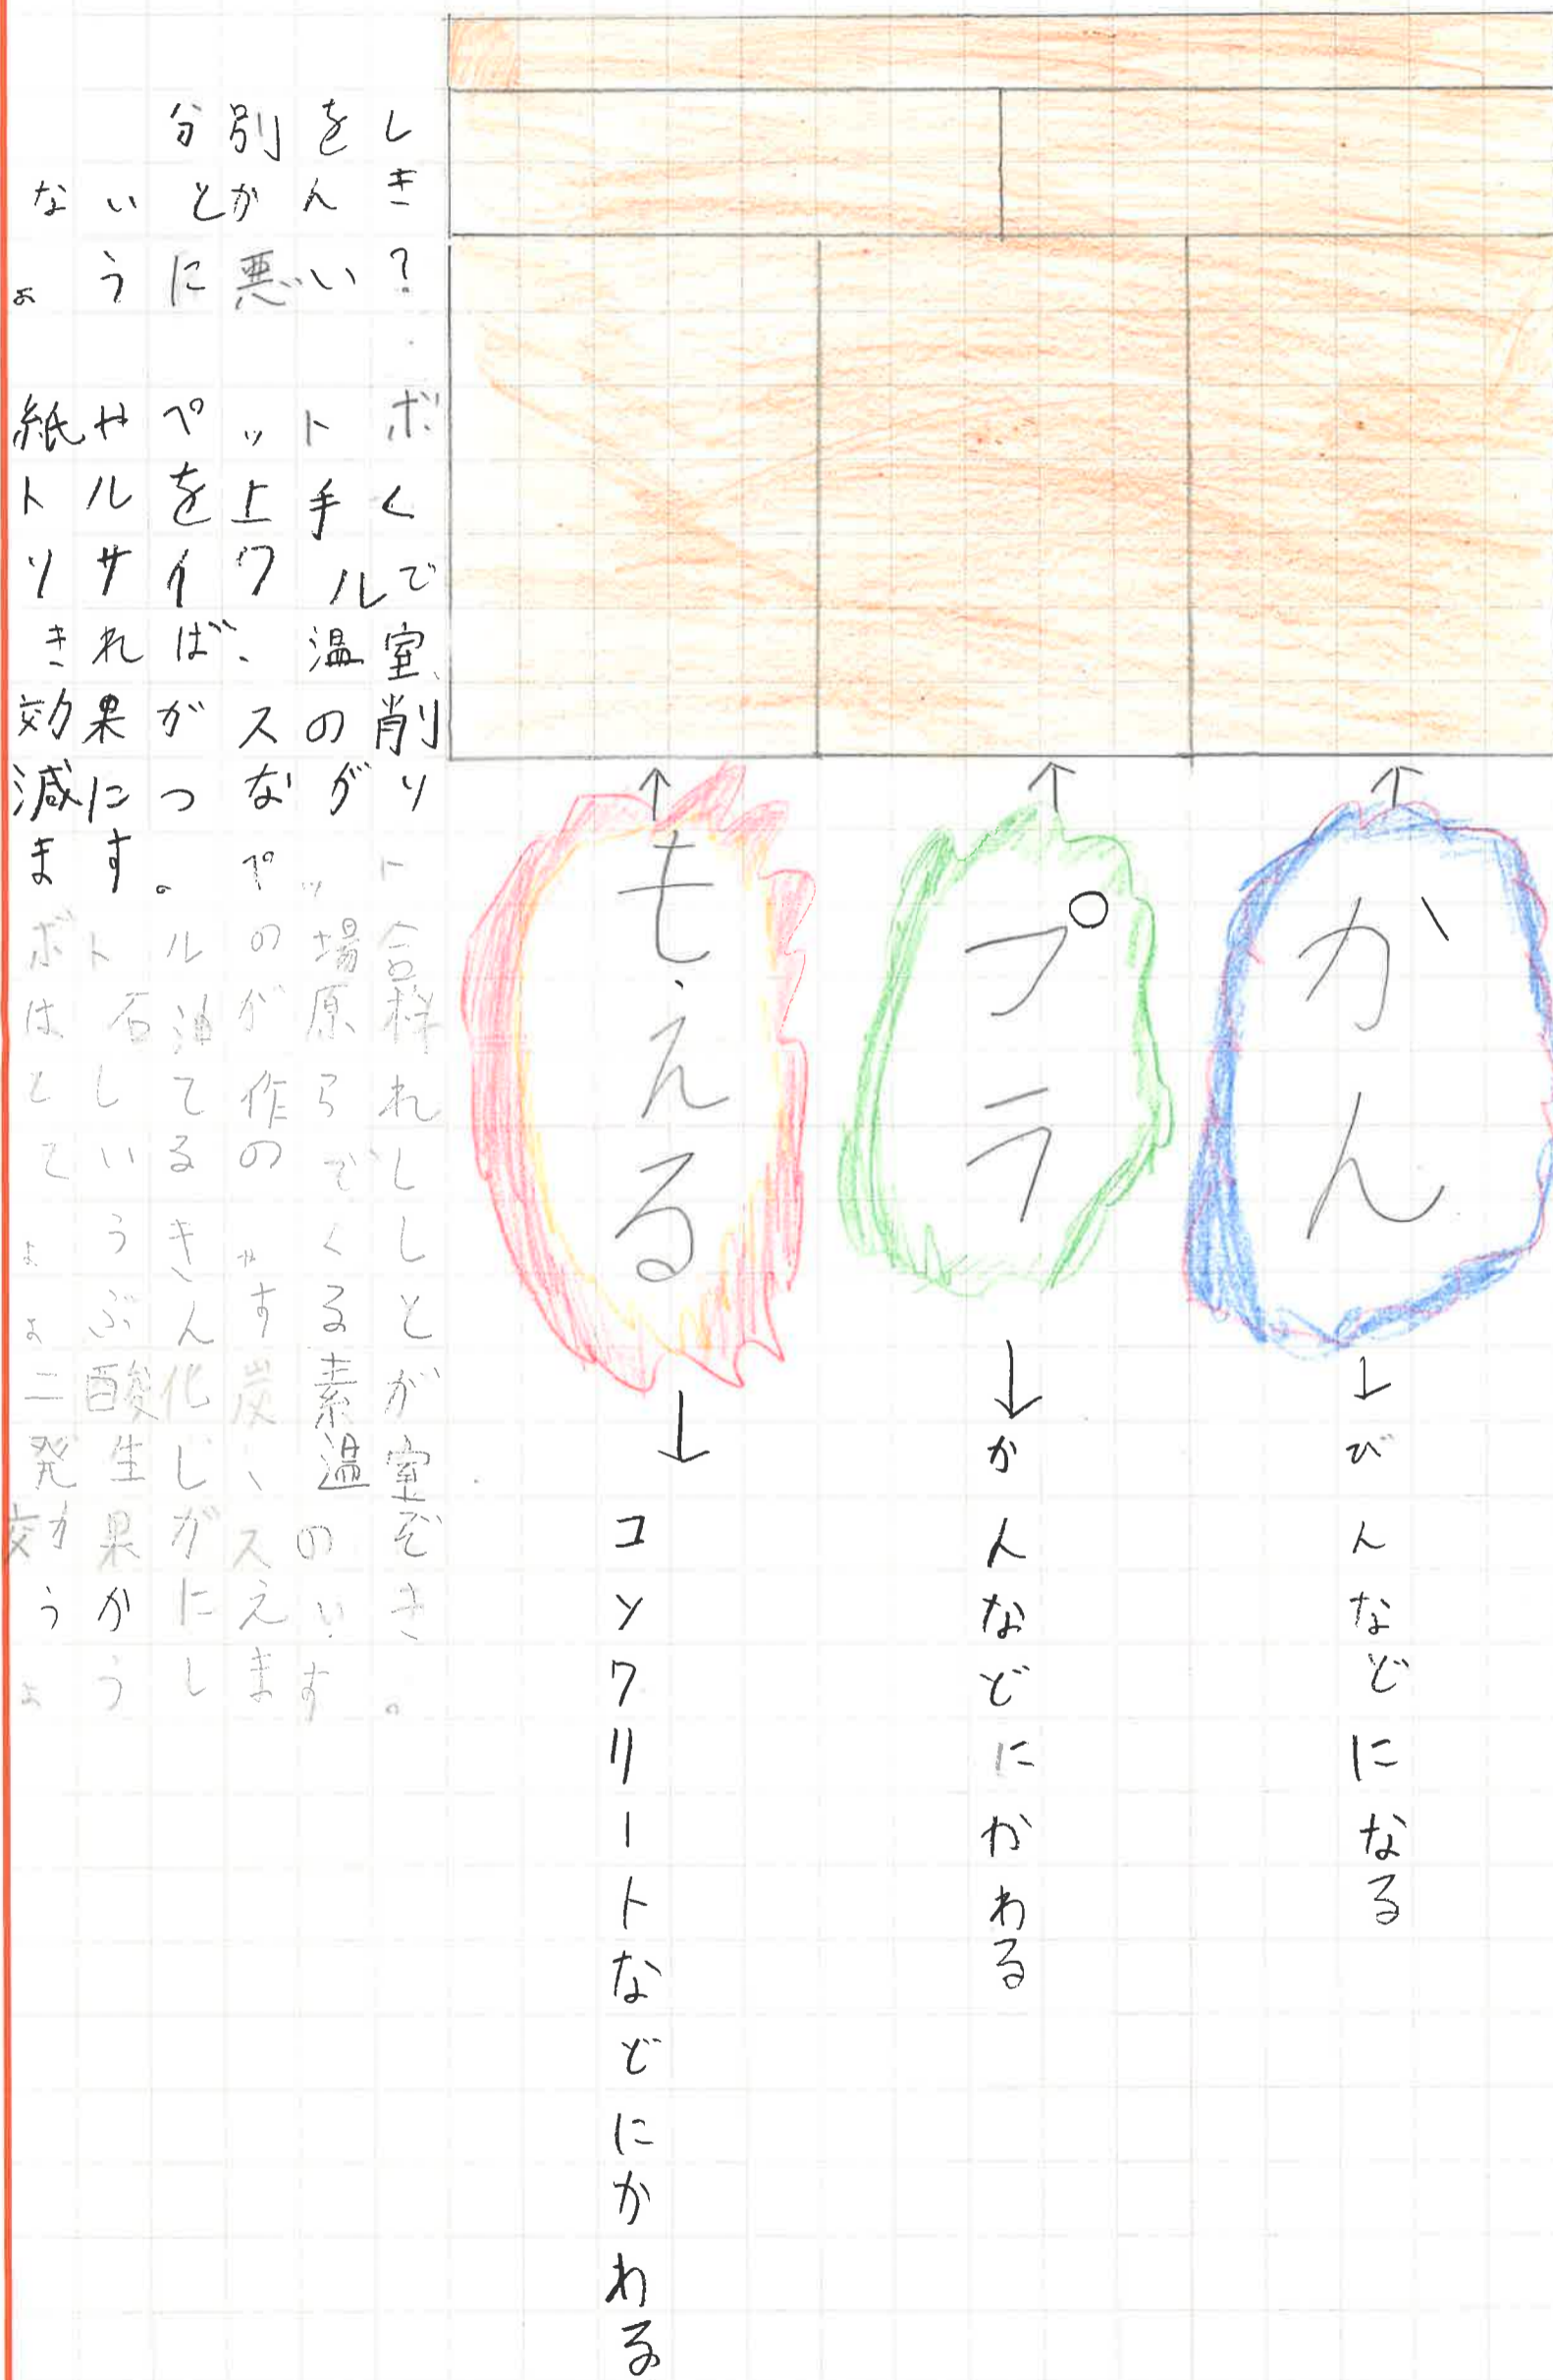 かん
びんなどになる
プラ
かんなどにかわる
もえる
コンクリートなどにかわる
分別をし
ないとかんき
ょうに悪い?
紙やペットボ
トルを上手く
リサイクルで
きれば、温室
効果がスの削
減につながり
ます。ペット
ボトルの場合
は石油が原料
として作られ
ているのでし
ょうきゃくし
ょぶんすると
二酸化炭素が
発生し、温室
効果がスのぞ
うかにえいき
ょうします。